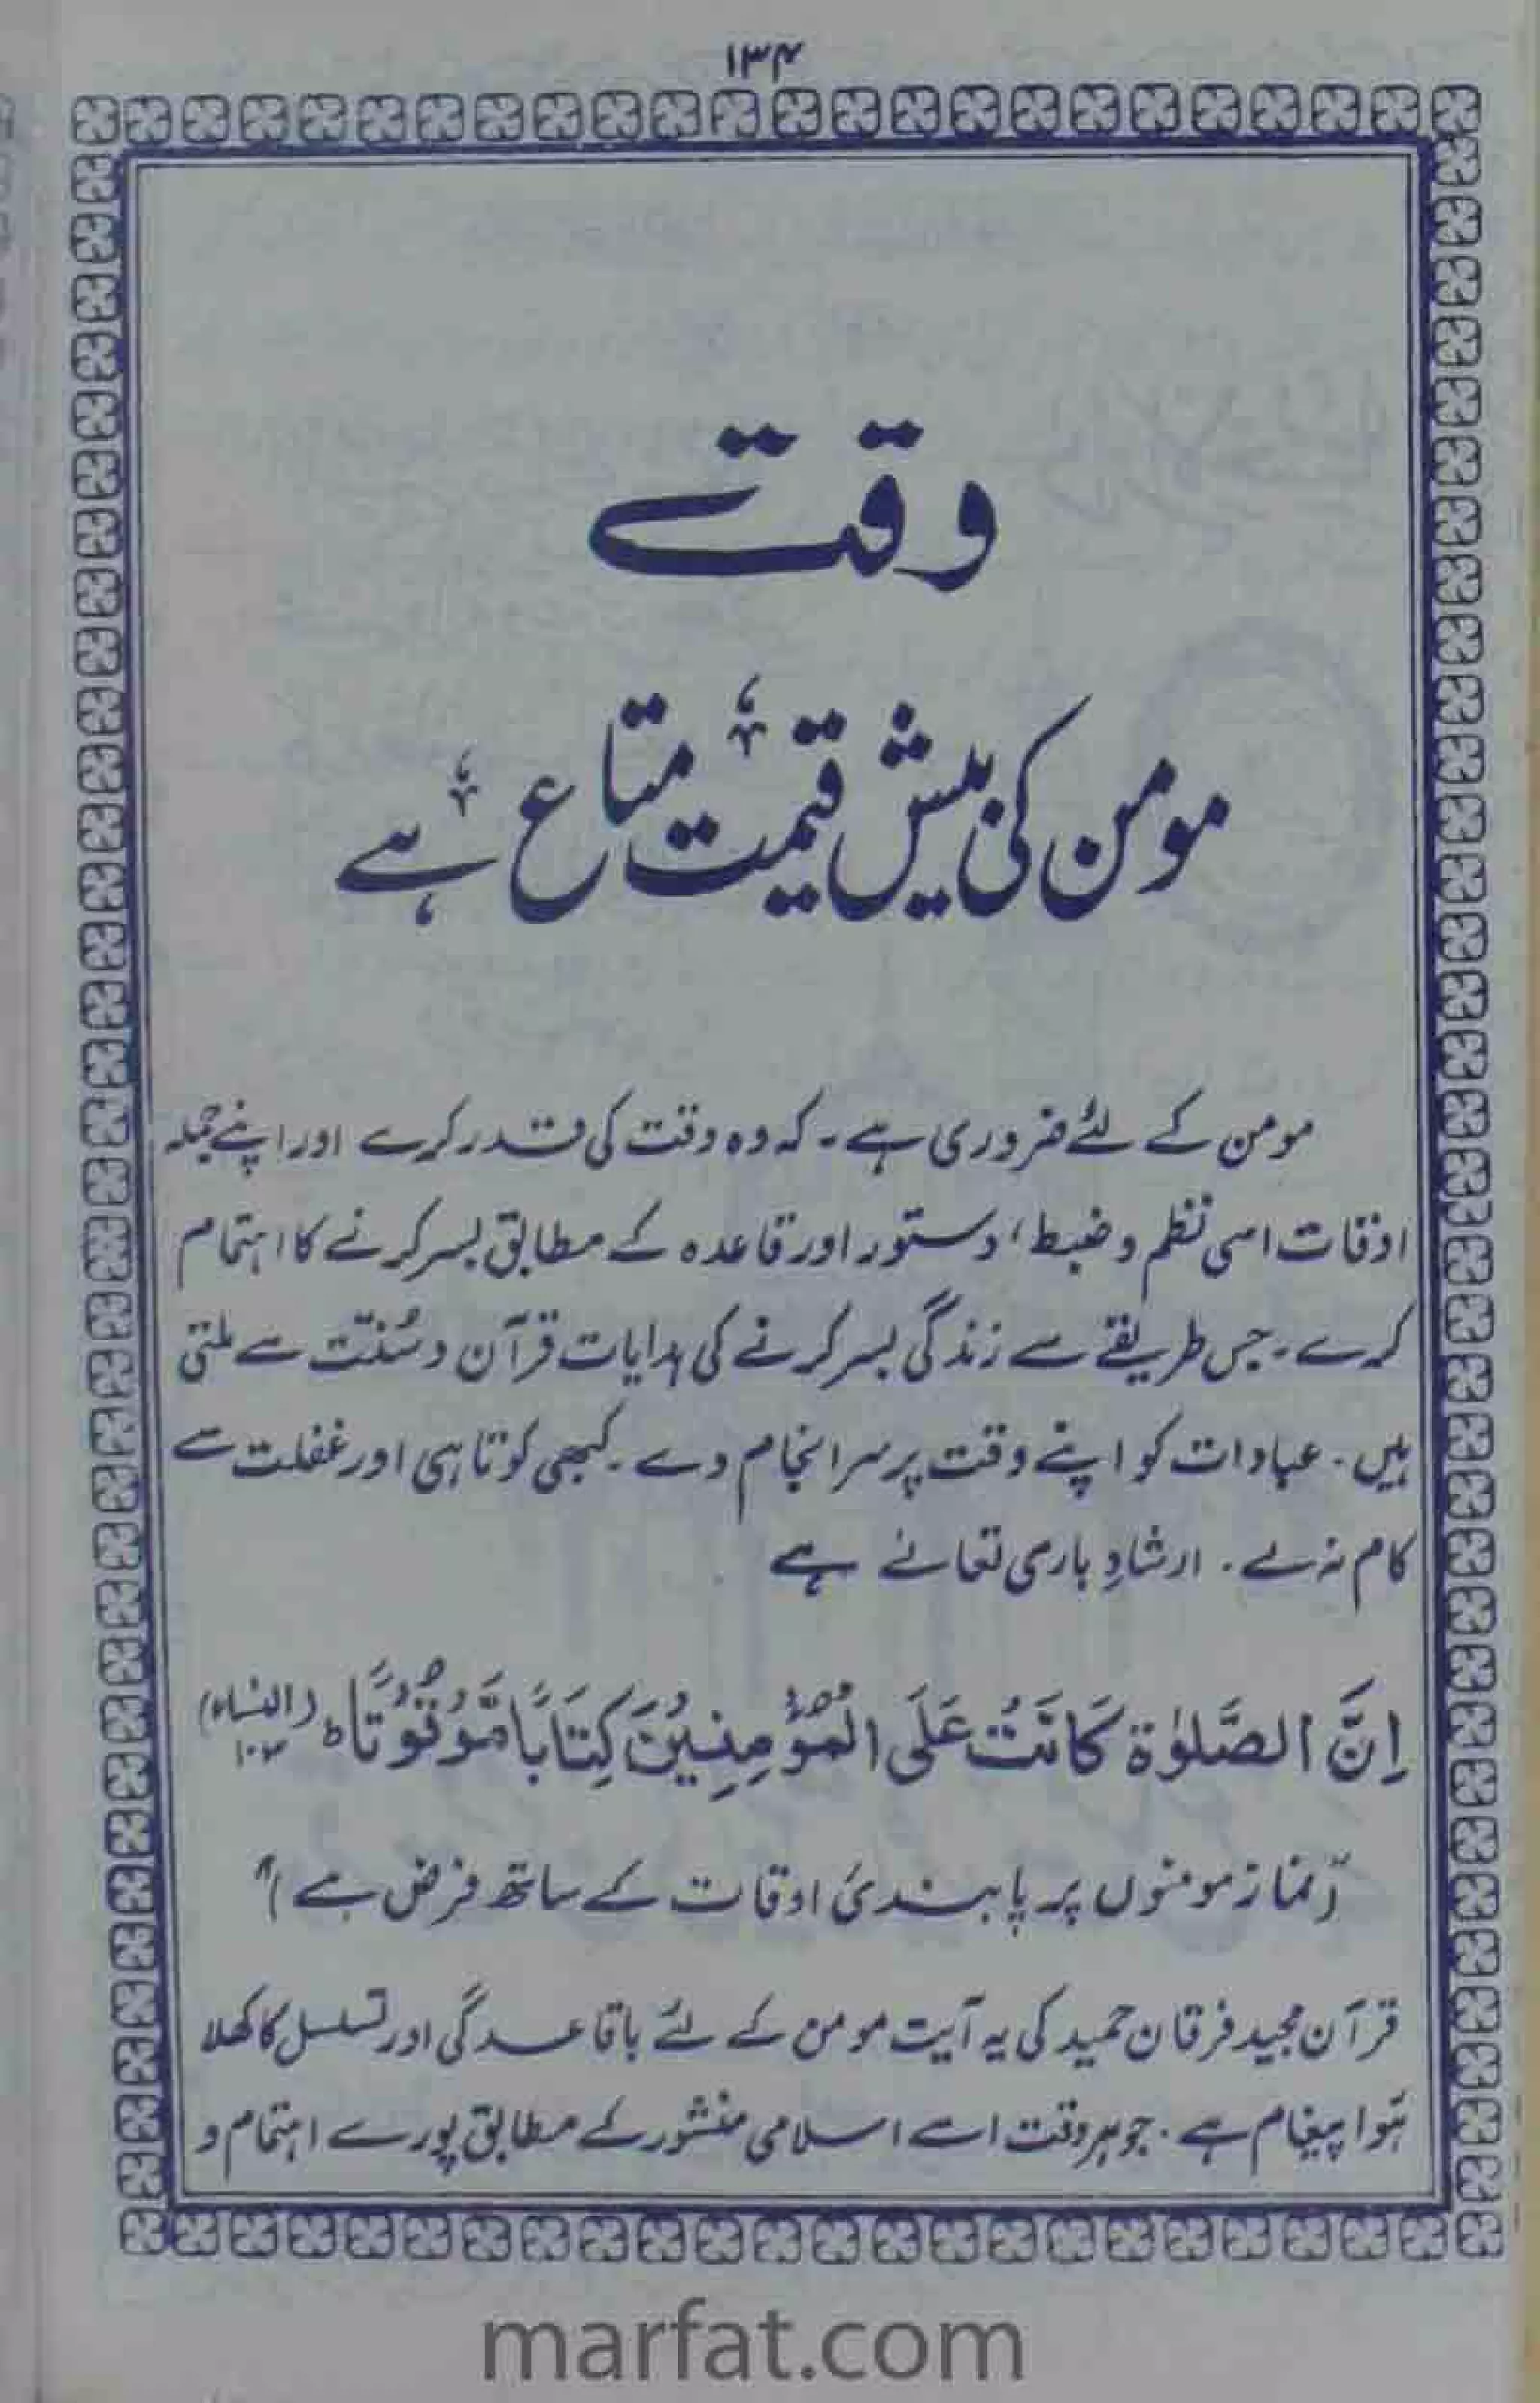 ۱۳۴
وقت
مومن کی بیش قیمت متاع ہے
مومن کے لئے ضروری ہے۔ کہ وہ وقت کی قدر کرے اور اپنے جملہ
اوقات اسی نظم و ضبط، دستور اور قاعدہ کے مطابق بسر کرنے کا اہتمام
کرے۔ جس طریقے سے زندگی بسر کرنے کی ہدایات قرآن و سُنّت سے ملتی
ہیں۔ عبادات کو اپنے وقت پر سرانجام دے۔ کبھی کوتاہی اور غفلت سے
کام نہ لے۔ ارشادِ باری تعالےٰ ہے
اِنَّ الصَّلٰوةَ كَانَتْ عَلَى الْمُؤْمِنِيْنَ كِتَابًا مَّوْقُوْتًا ہ (النساء ۱۰۳)
"(نماز مومنوں پر پابندیٔ اوقات کے ساتھ فرض ہے)"
قرآن مجید فرقان حمید کی یہ آیت مومن کے لئے باقاعدگی اور تسلسل کا کھلا
ہُوا پیغام ہے۔ جو ہر وقت اسے اسلامی منشور کے مطابق پورے اہتمام و
marfat.com